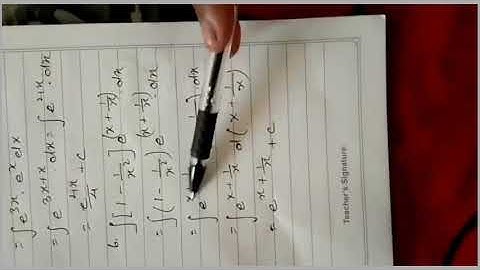 = ∫e^{3x}. e^x dx
= ∫e^{3x+x}.dx = ∫e^{4x}.dx
= e^{4x}/4 + c
6. ∫[1 - 1/x²] e^{(x + 1/x)}.dx
= ∫(1 - 1/x²) e^{(x + 1/x)}.dx
= ∫e dx
= ∫e^{x + 1/x} d(x + 1/x)
= e^{x + 1/x} + c
Teacher's Signature